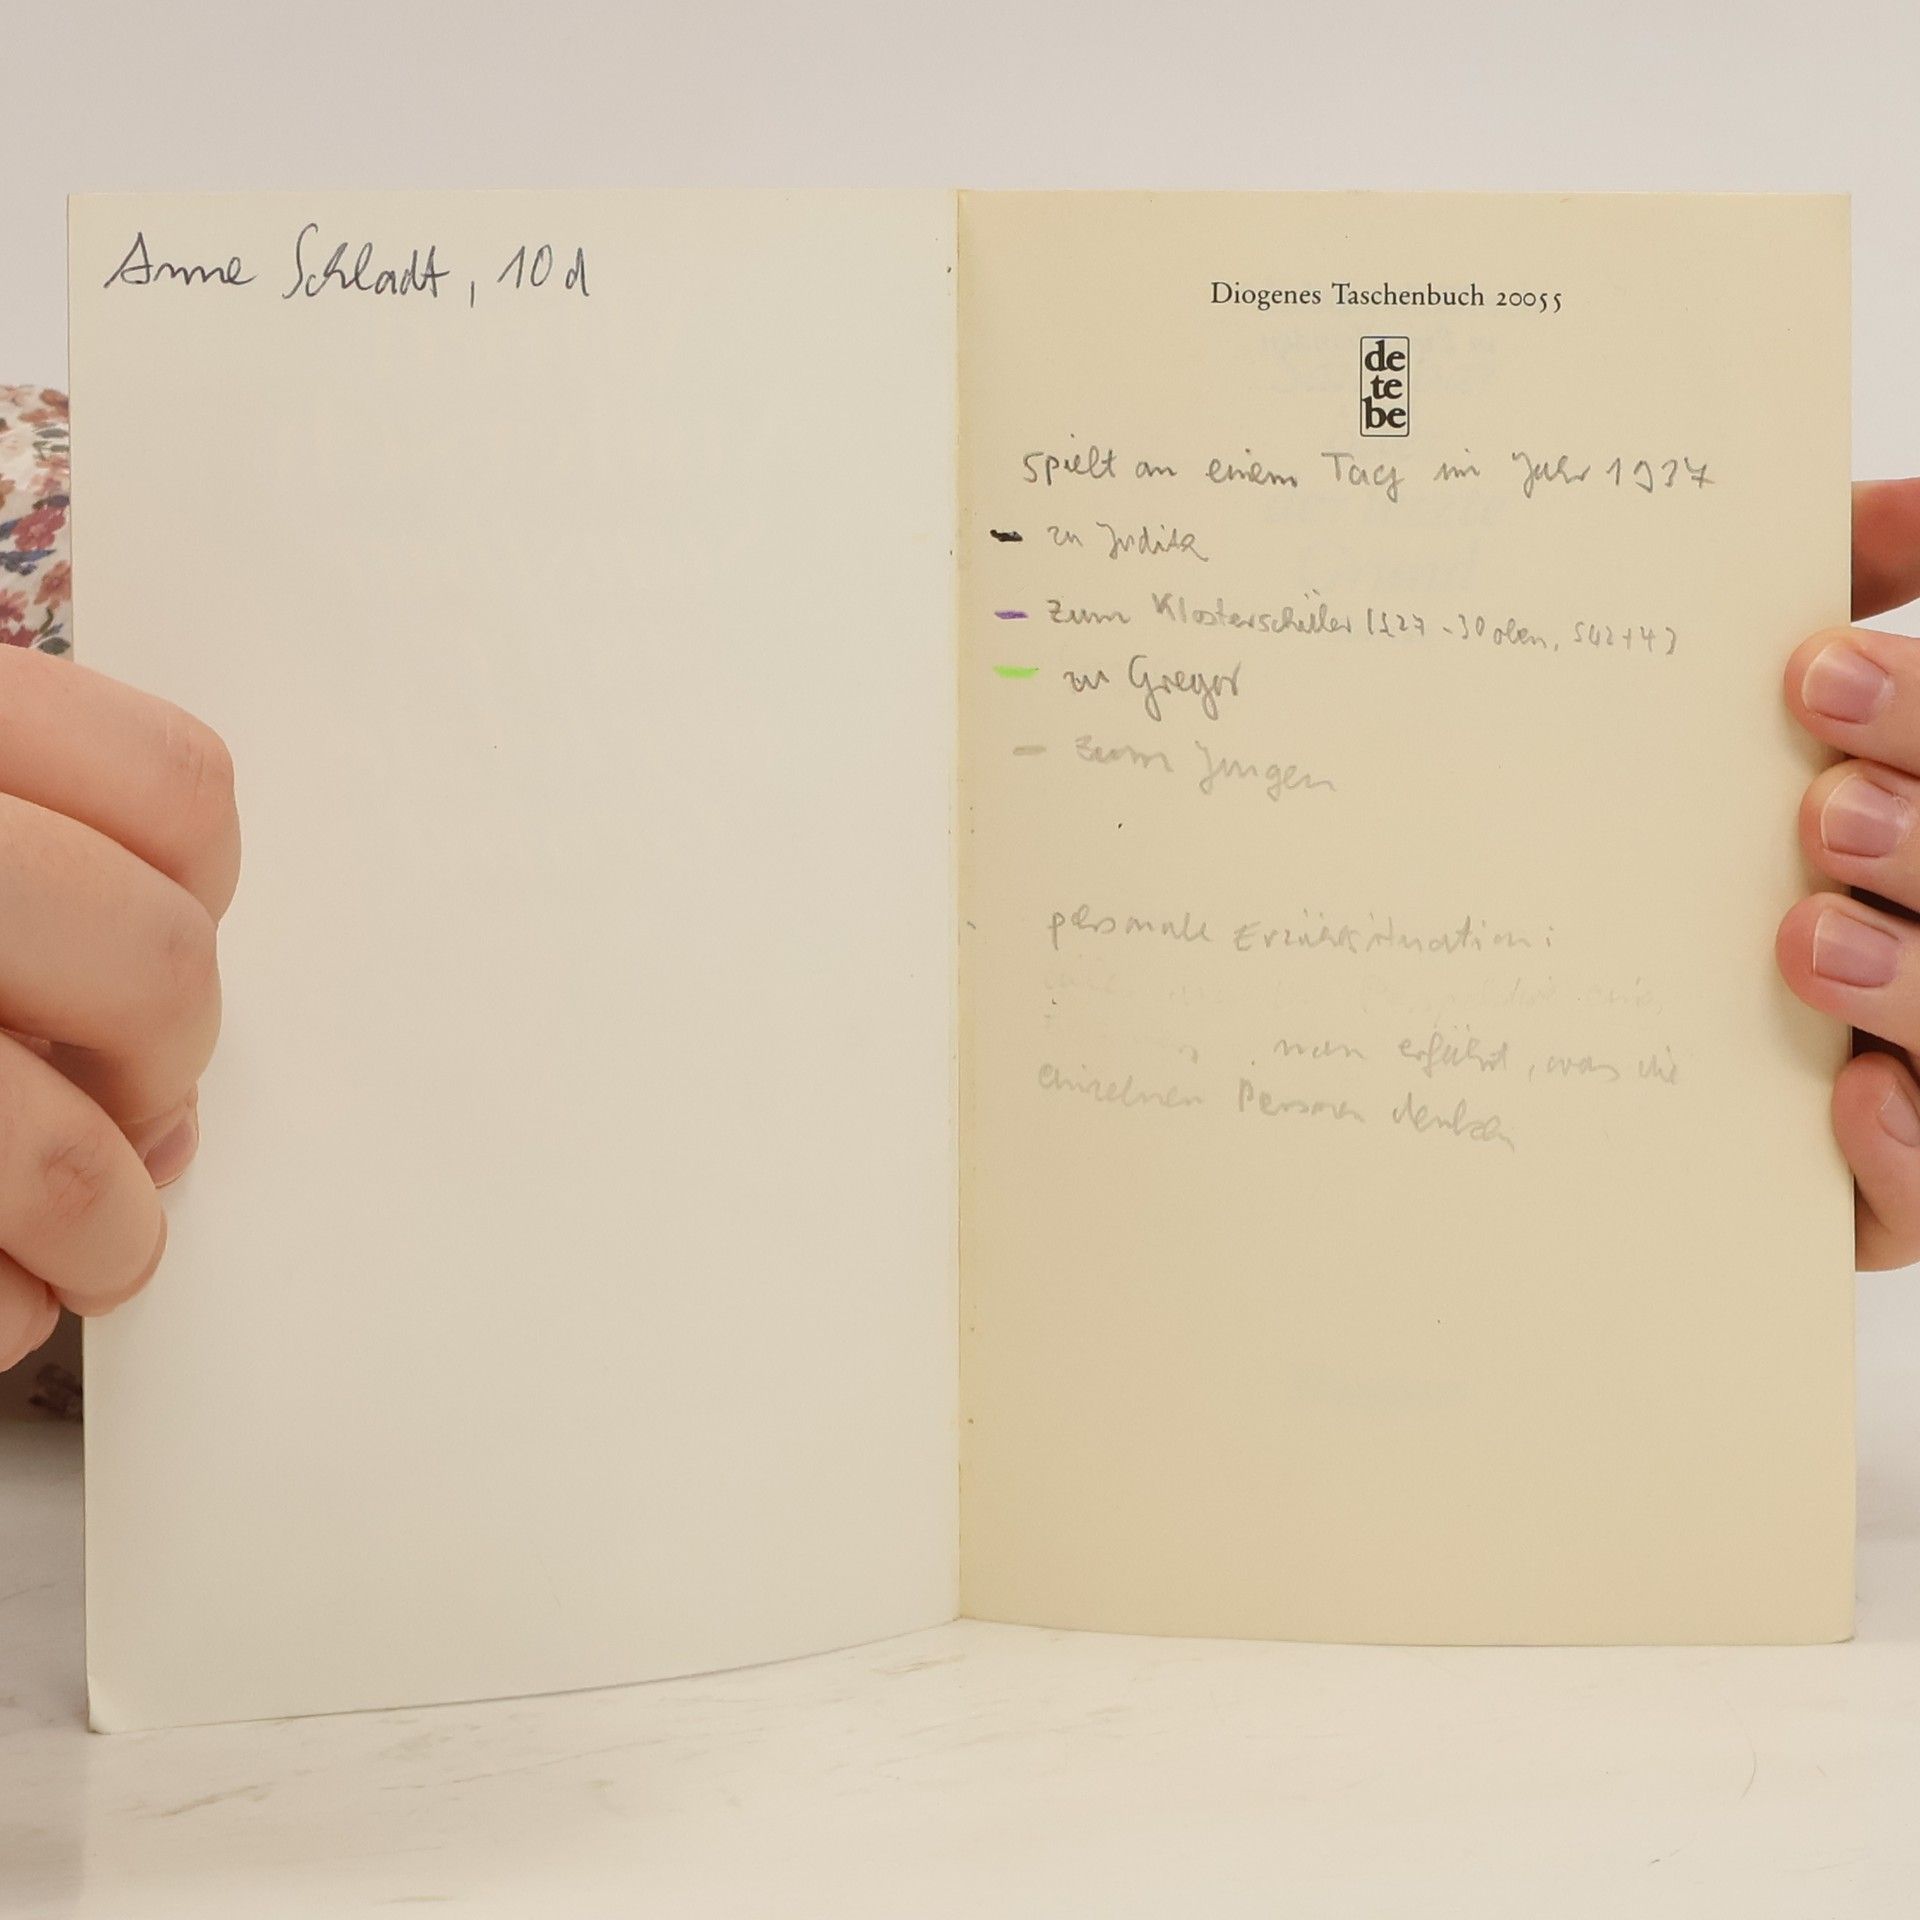 Anne Schladt, 10d
Diogenes Taschenbuch 20055
de
te
be
spielt an einem Tag im Jahr 1937
zu Judith
zum Klosterschüler (S27 - 30 oben, S42+43
zu Gregor
zum Jungen
personale Erzählsituation:
man erfährt, was die
einzelnen Personen denken